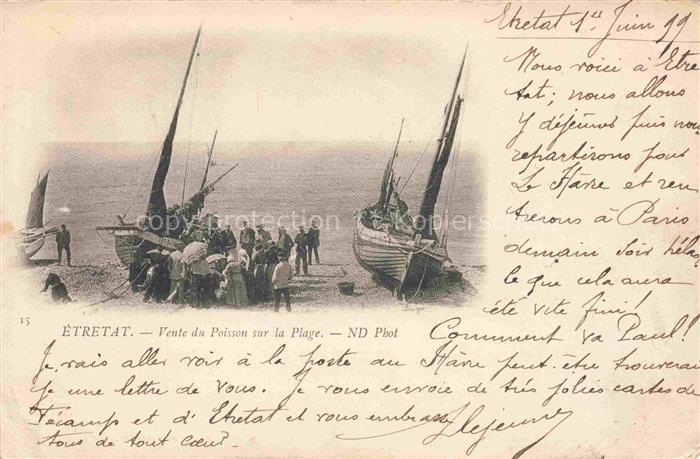 Etretat 1er Juin 99
Nous voici à Etre
tat; nous allons
y déjeuner puis nous
repartirons pour
Le Havre et ren
trerons à Paris
demain soir hélas
ce que cela aura
été vite fini!
Comment va Paul!
15
ÉTRETAT. — Vente du Poisson sur la Plage. — ND Phot
Je vais aller voir à la poste au Hâvre peut-être trouverai
je une lettre de vous. Je vous envoie de très jolies cartes de
Fécamp et d'Etretat et vous embrasse
tous de tout cœur.
Lejeune
copyright protected